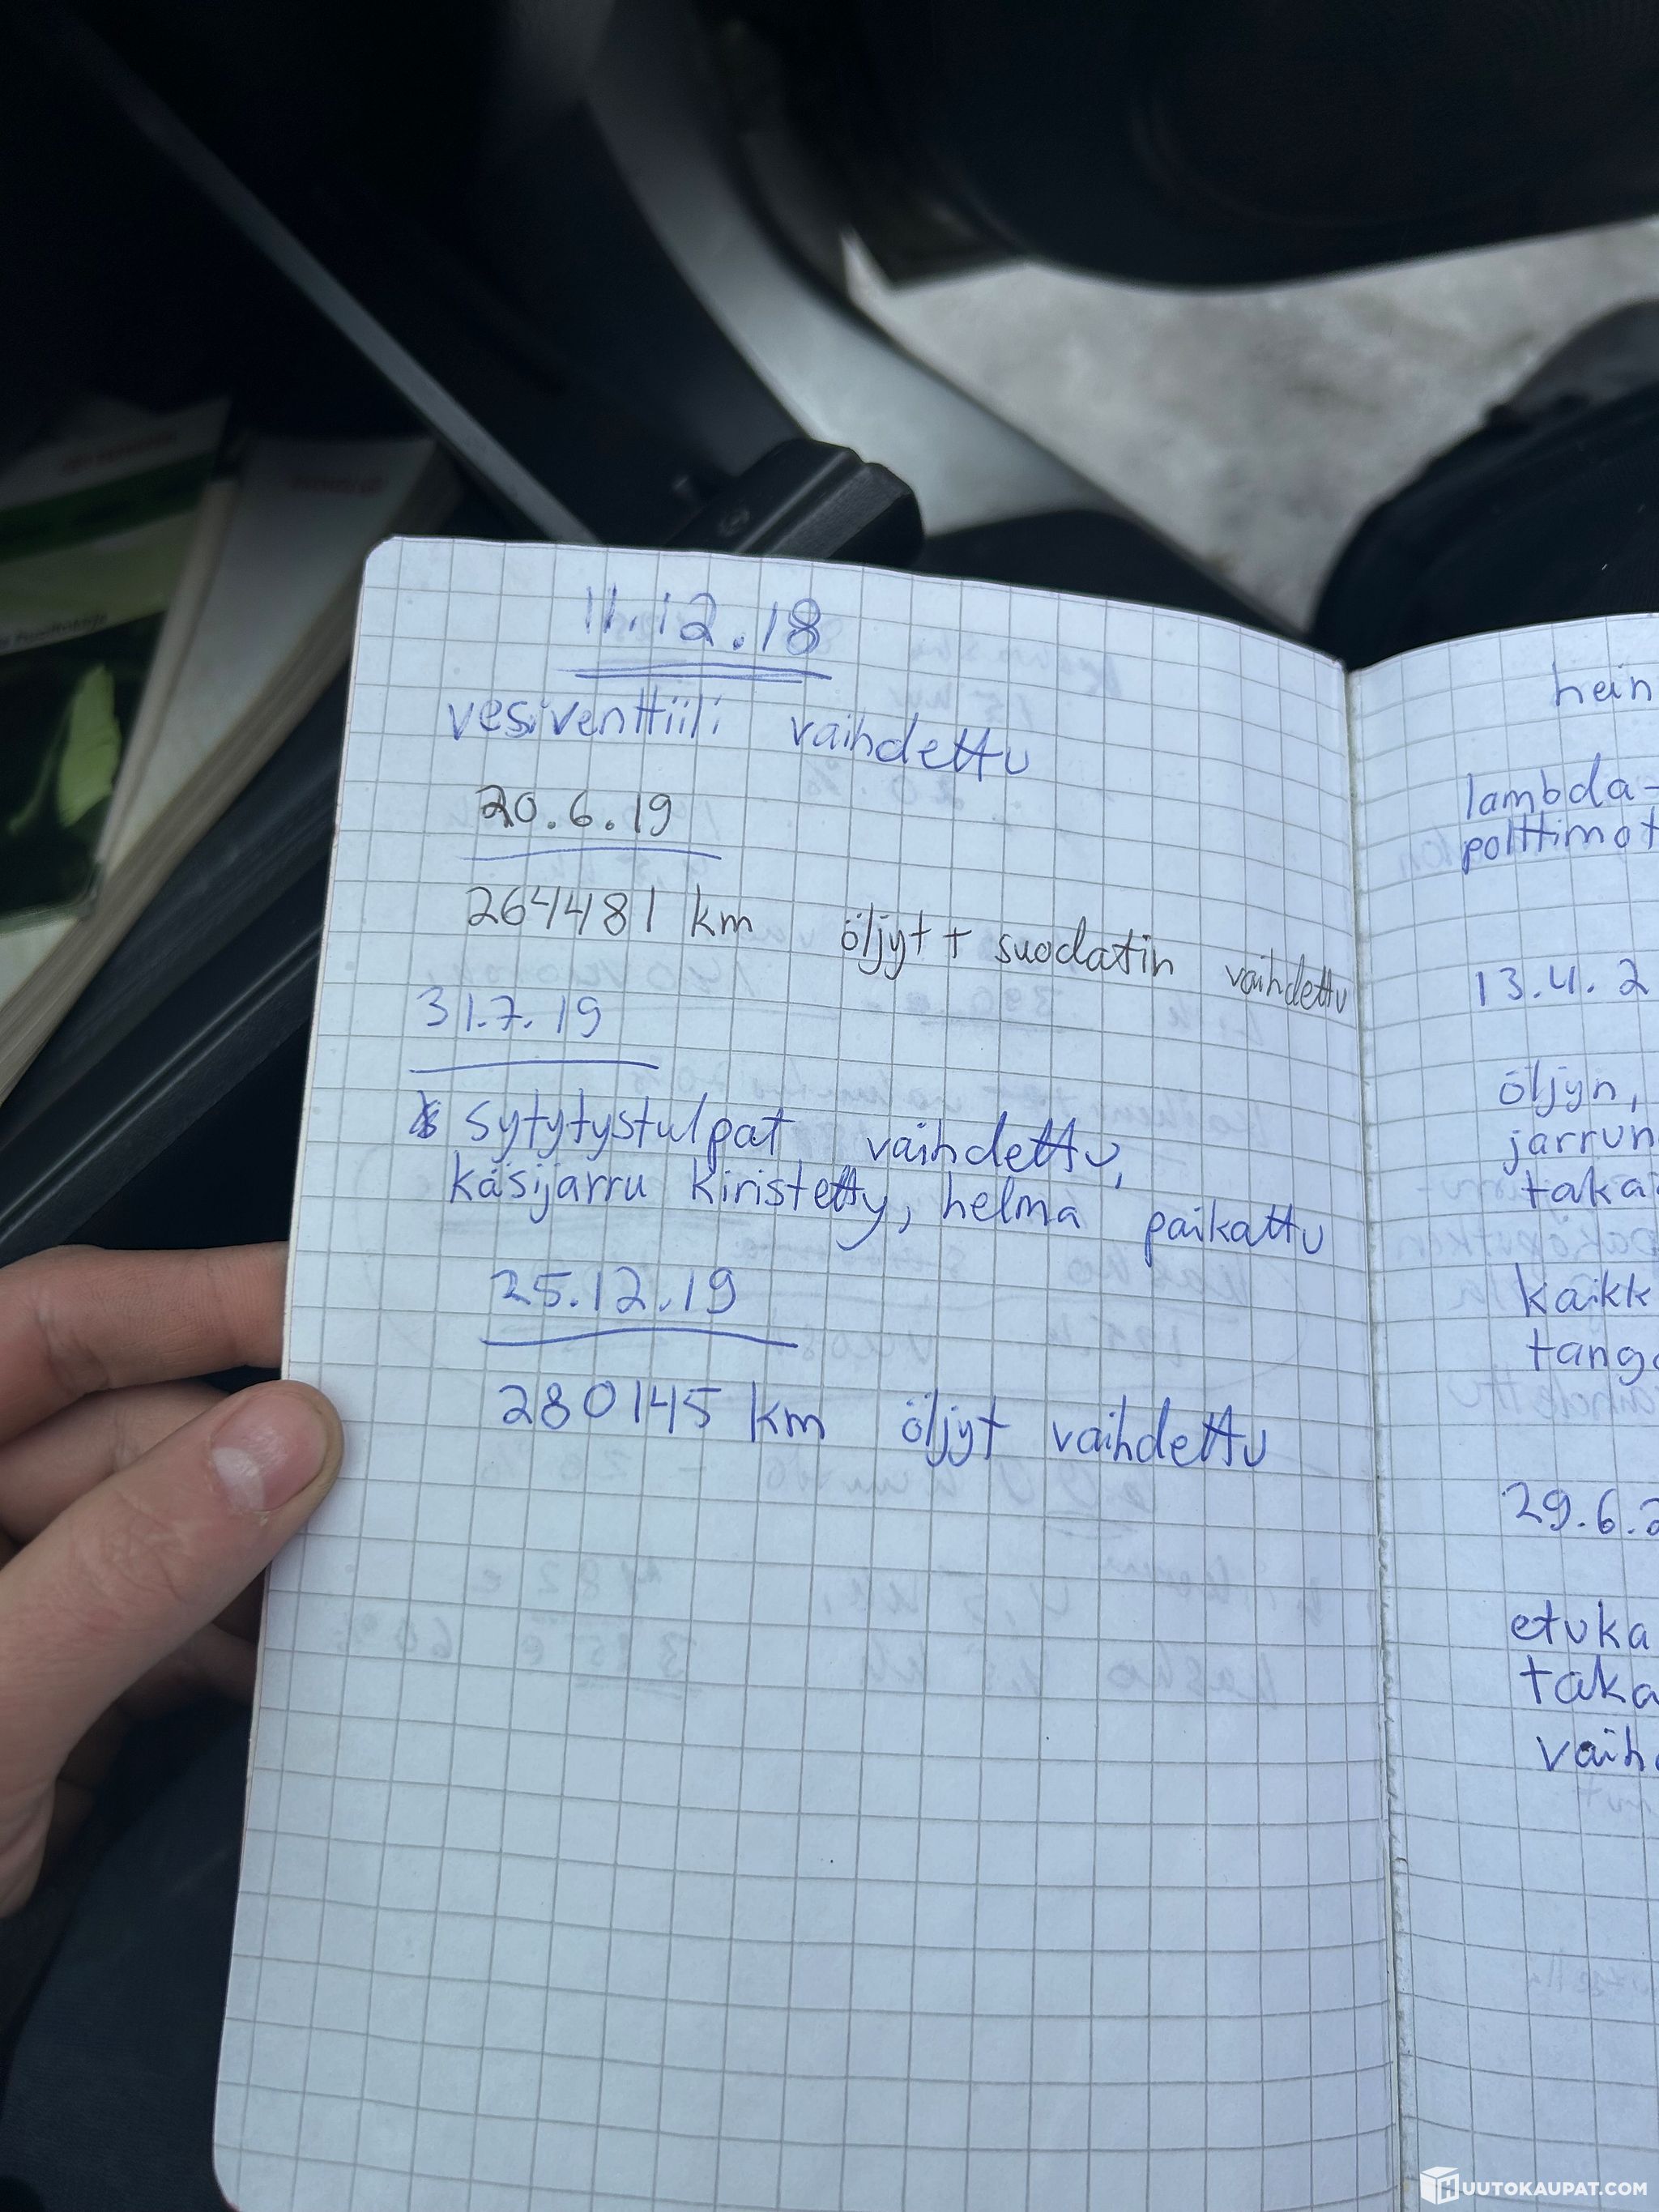 11.12.18
vesiventtiili vaihdettu
20.6.19
264481 km öljyt + suodatin vaihdettu
31.7.19
sytytystulpat vaihdettu,
käsijarru kiristetty, helma paikattu
25.12.19
280145 km öljyt vaihdettu
hein
lambda-
polttimot
13.4.2
öljyn,
jarrun
taka
kaikk
tang
29.6.2
etuka
taka
vaih
HUUTOKAUPAT.COM